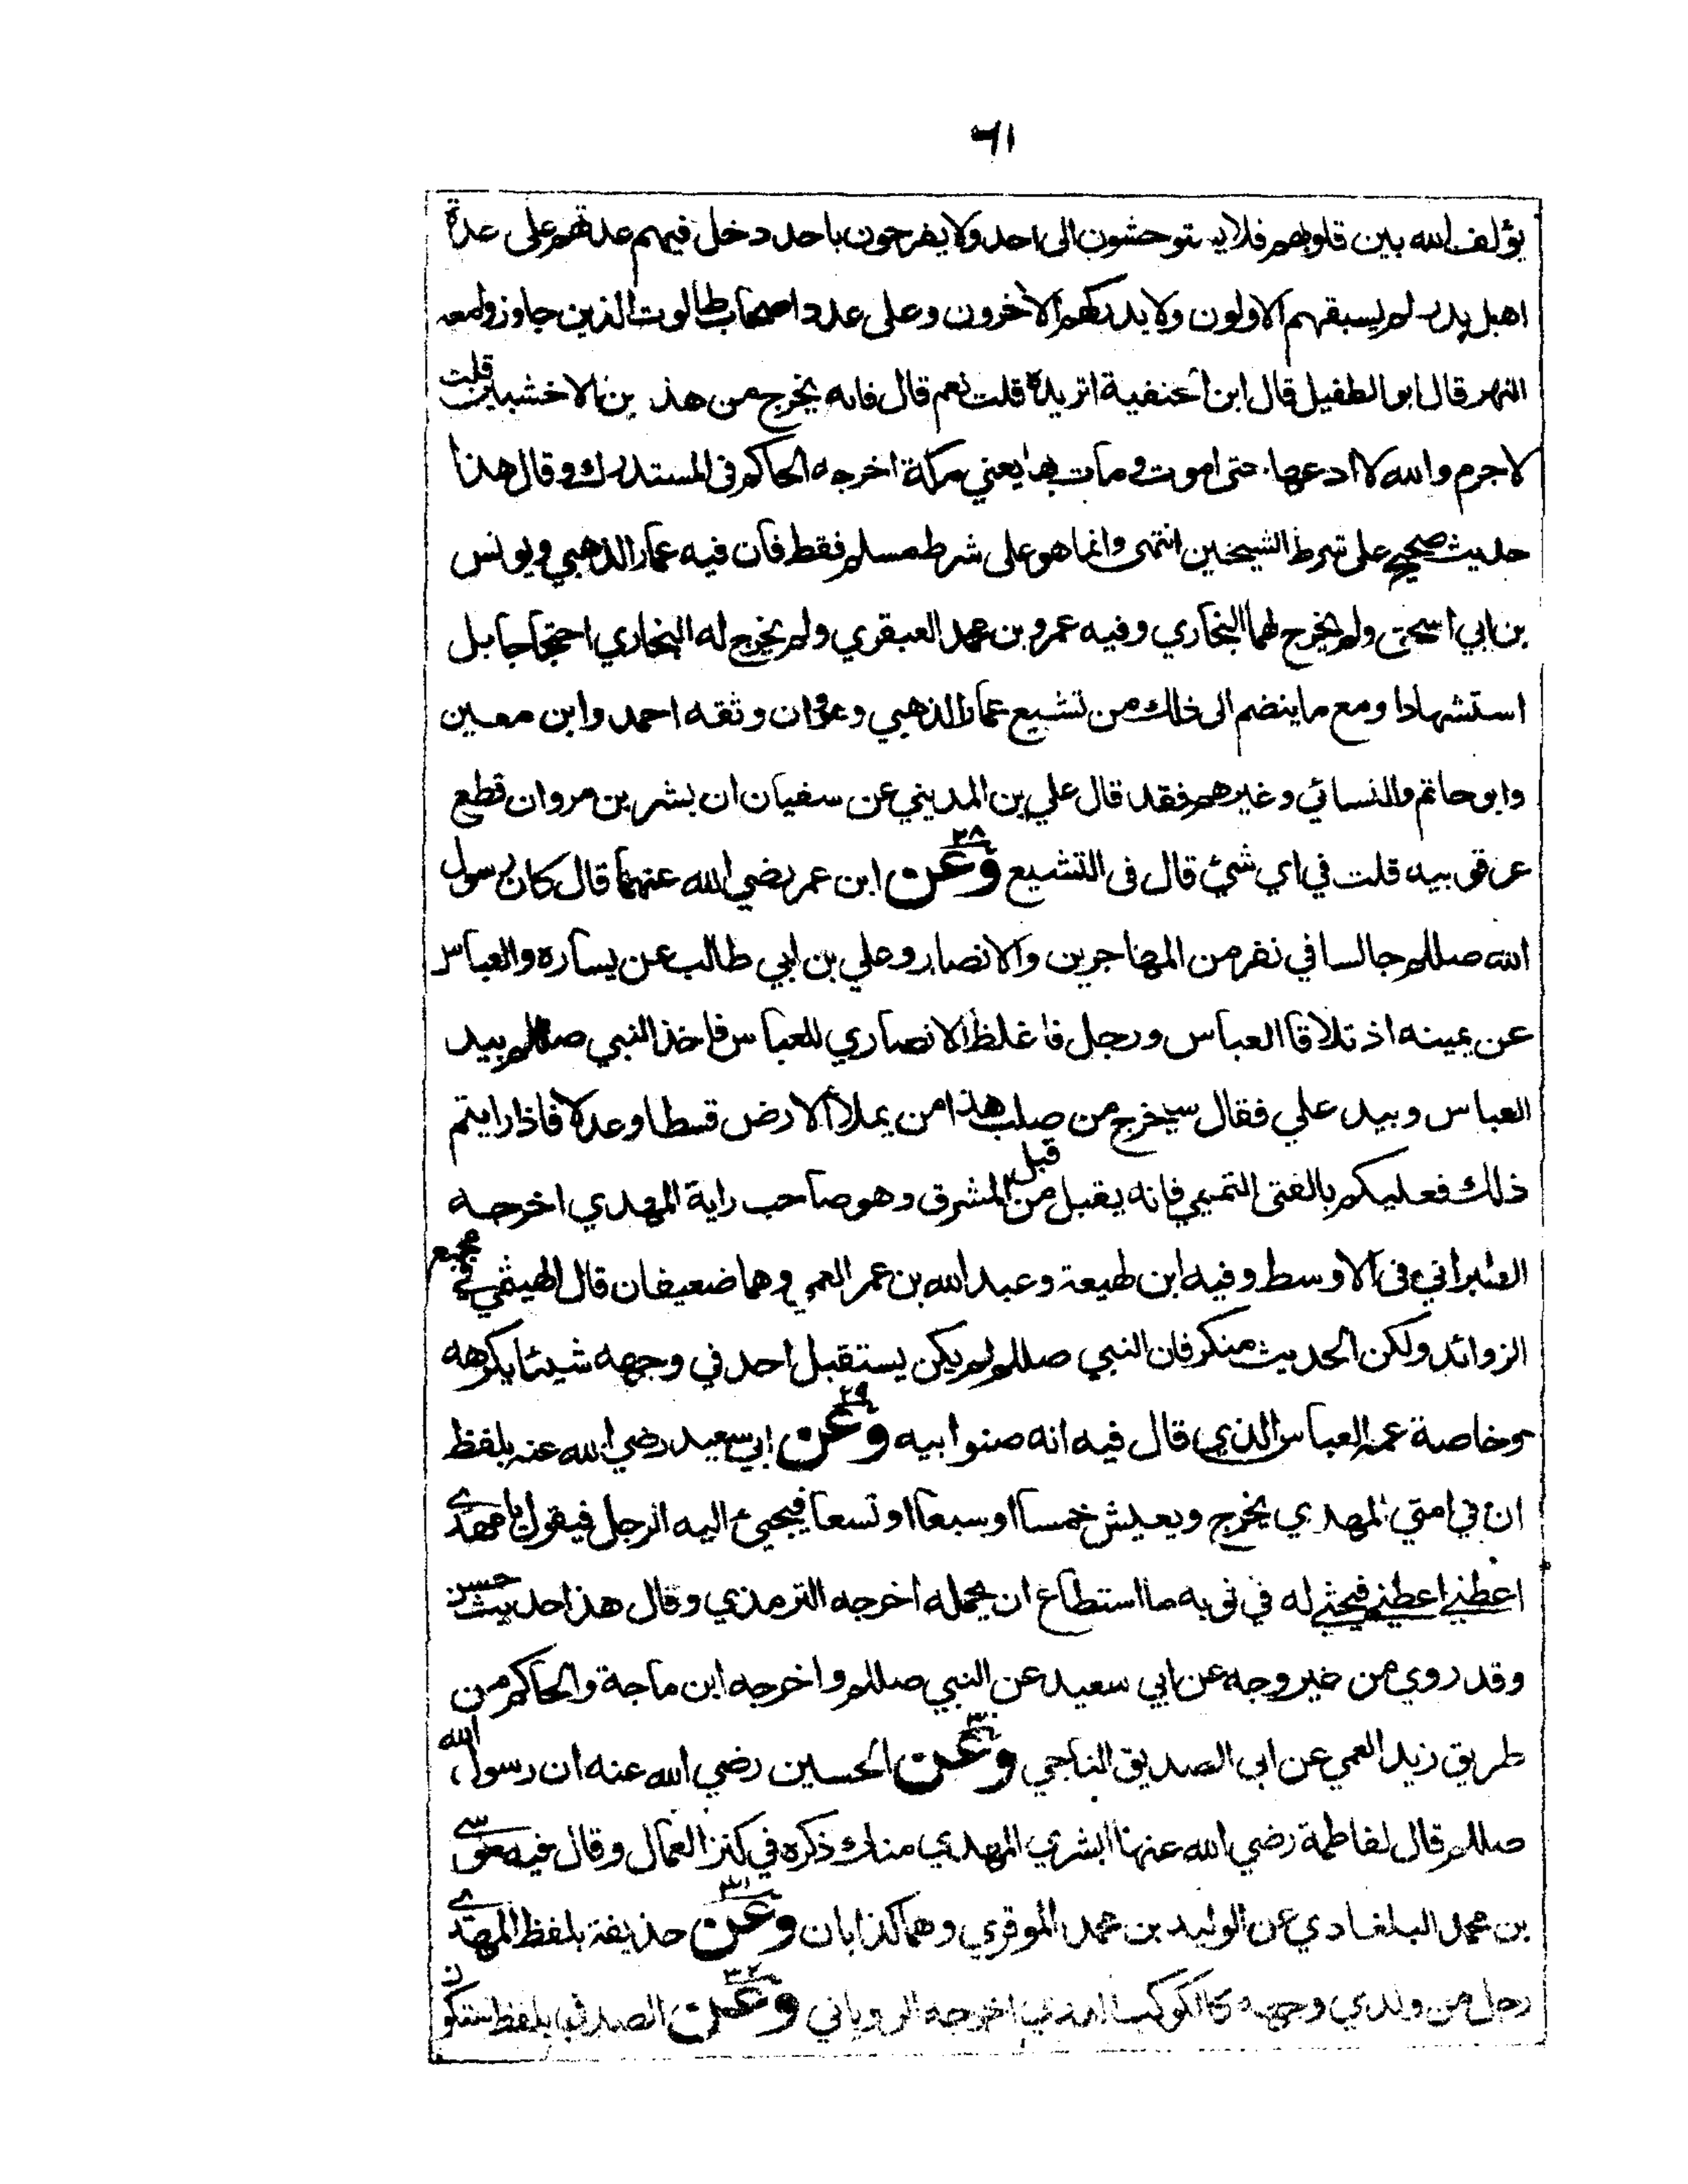 ٦١
يؤلف الله بين قلوبهم فلا يستوحشون الى احد ولا يفرحون باحد دخل فيهم عدتهم على عدة
اهل بدر لم يسبقهم الاولون ولا يدركهم الآخرون وعلى عدد اصحاب طالوت الذين جاوزوا معه
النهر قال ابو الطفيل قال ابن الحنفية اتريده قلت نعم قال فانه يخرج من هذين الاخشبين قلت
لا جرم والله لا ادعها حتى اموت ومات بها يعني مكة اخرجه الحاكم فى المستدرك وقال هذا
حديث صحيح على شرط الشيخين انتهى وانما هو على شرط مسلم فقط فان فيه عمار الذهبي ويونس
بن ابي اسحق ولم يخرج لهما البخاري وفيه عمرو بن محمد العبقري ولم يخرج له البخاري احتجاجا بل
استشهادا ومع ما ينضم الى ذلك من تشيع عمار الذهبي وهو وان وثقه احمد وابن معين
وابو حاتم والنسائي وغيرهم فقد قال علي بن المديني عن سفيان ان بشر بن مروان قطع
عرقوبيه قلت في اي شئ قال فى التشيع وعن ٢٨ ابن عمر رضي الله عنهما قال كان رسول
الله صللم جالسا في نفر من المهاجرين والانصار وعلي بن ابي طالب عن يساره والعباس
عن يمينه اذ تلاقا العباس ورجل فاغلظ الانصاري للعباس فاخذ النبي صللم بيد
العباس وبيد علي فقال سيخرج من صلب هذا من يملأ الارض قسطا وعدلا فاذا رايتم
ذلك فعليكم بالفتى التميمي فانه يقبل من قبل المشرق وهو صاحب راية المهدي اخرجه
الطبراني فى الاوسط وفيه ابن لهيعة وعبد الله بن عمر العمي وهما ضعيفان قال الهيثمي في مجمع
الزوائد ولكن الحديث منكر فان النبي صللم لم يكن يستقبل احد في وجهه شيئا يكرهه
وخاصة عمه العباس الذي قال فيه انه صنو ابيه وعن ٢٩ ابي سعيد رضي الله عنه بلفظ
ان في امتي المهدي يخرج ويعيش خمسا او سبعا او تسعا فيجيء اليه الرجل فيقول يا مهدي
اعطني اعطني فيحثي له في ثوبه ما استطاع ان يحمله اخرجه الترمذي وقال هذا حديث حسن
وقد روي من غير وجه عن ابي سعيد عن النبي صللم واخرجه ابن ماجة والحاكم من
طريق زيد العمي عن ابي الصديق الناجي وعن ٣٠ الحسين رضي الله عنه ان رسول الله
صللم قال لفاطمة رضي الله عنها ابشري المهدي منك ذكره في كنز العمال وقال فيه موسى
بن محمد البلغادي عن الوليد بن محمد الموقري وهما كذابان وعن ٣١ حذيفة بلفظ المهدي
رجل من ولدي وجهه كالكوكب الدري اخرجه الروياني وعن ٣٢ الصدفي بلفظ ستكون